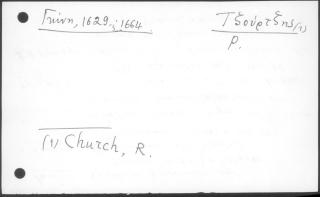 Γκίνη, 1629, 1664. Τζούρτζης(1)
Ρ.
(1) Church, R.